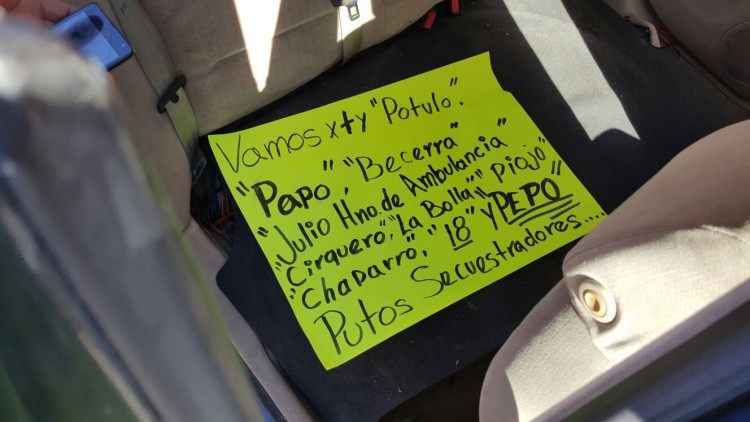 Vamos x ty "Potulo".
"Papo", "Becerra"
"Julio Hno. de Ambulancia"
"Cirquero", "La Bolla", "Piojo"
"Chaparro", "18" y "PEPO"
Putos Secuestradores.....